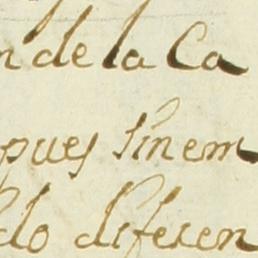 n de la Ca
pues sinem
do diferen